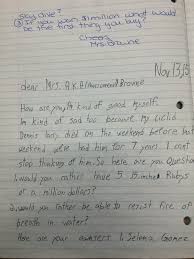 Stay Alive?
③ If you won $1million what would
be the first thing you buy?
Cheers
Mrs. Browne
Nov 13,15
dear Mrs. A.K.A Browne
How are you I'm kind of good myself.
Im kind of sad too because my Ciclid
Dennis body died on the weekend before last
weekend, we've had him for 7 years I can't
stop thinking of him. So here are you Question
1. would you rather have 5 15 inched Rubys
or a million dollars?
2. would you rather be able to resist fire or
breath in water?
Here are your awnsers 1. Selena Gomez